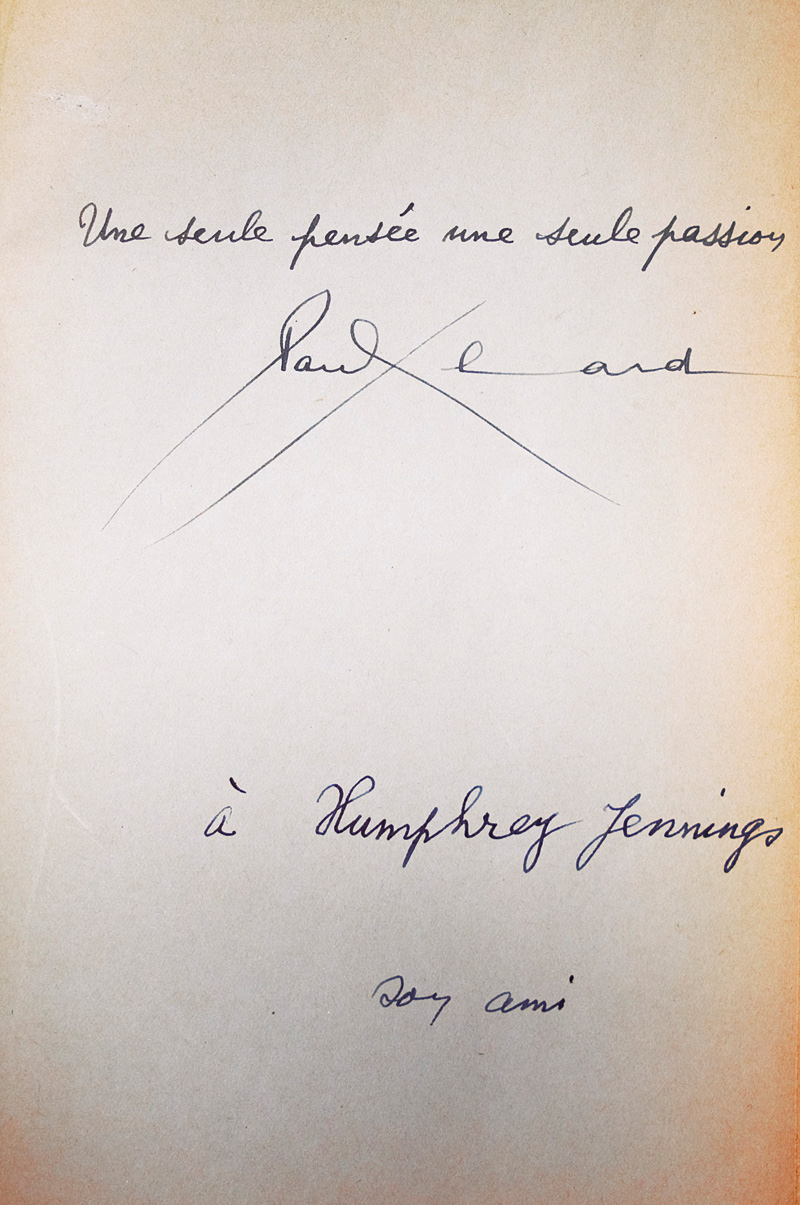 Une seule pensée une seule passion
Paul Eluard
à Humphrey Jennings
son ami